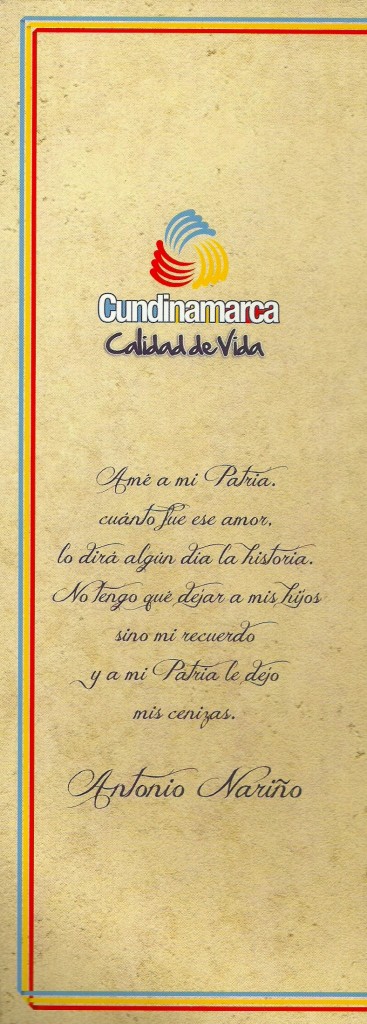 Cundinamarca
Calidad de Vida
Amé a mi Patria.
cuánto fue ese amor,
lo dirá algún dia la historia.
No tengo qué dejar a mis hijos
sino mi recuerdo
y a mi Patria le dejo
mis cenizas.
Antonio Nariño